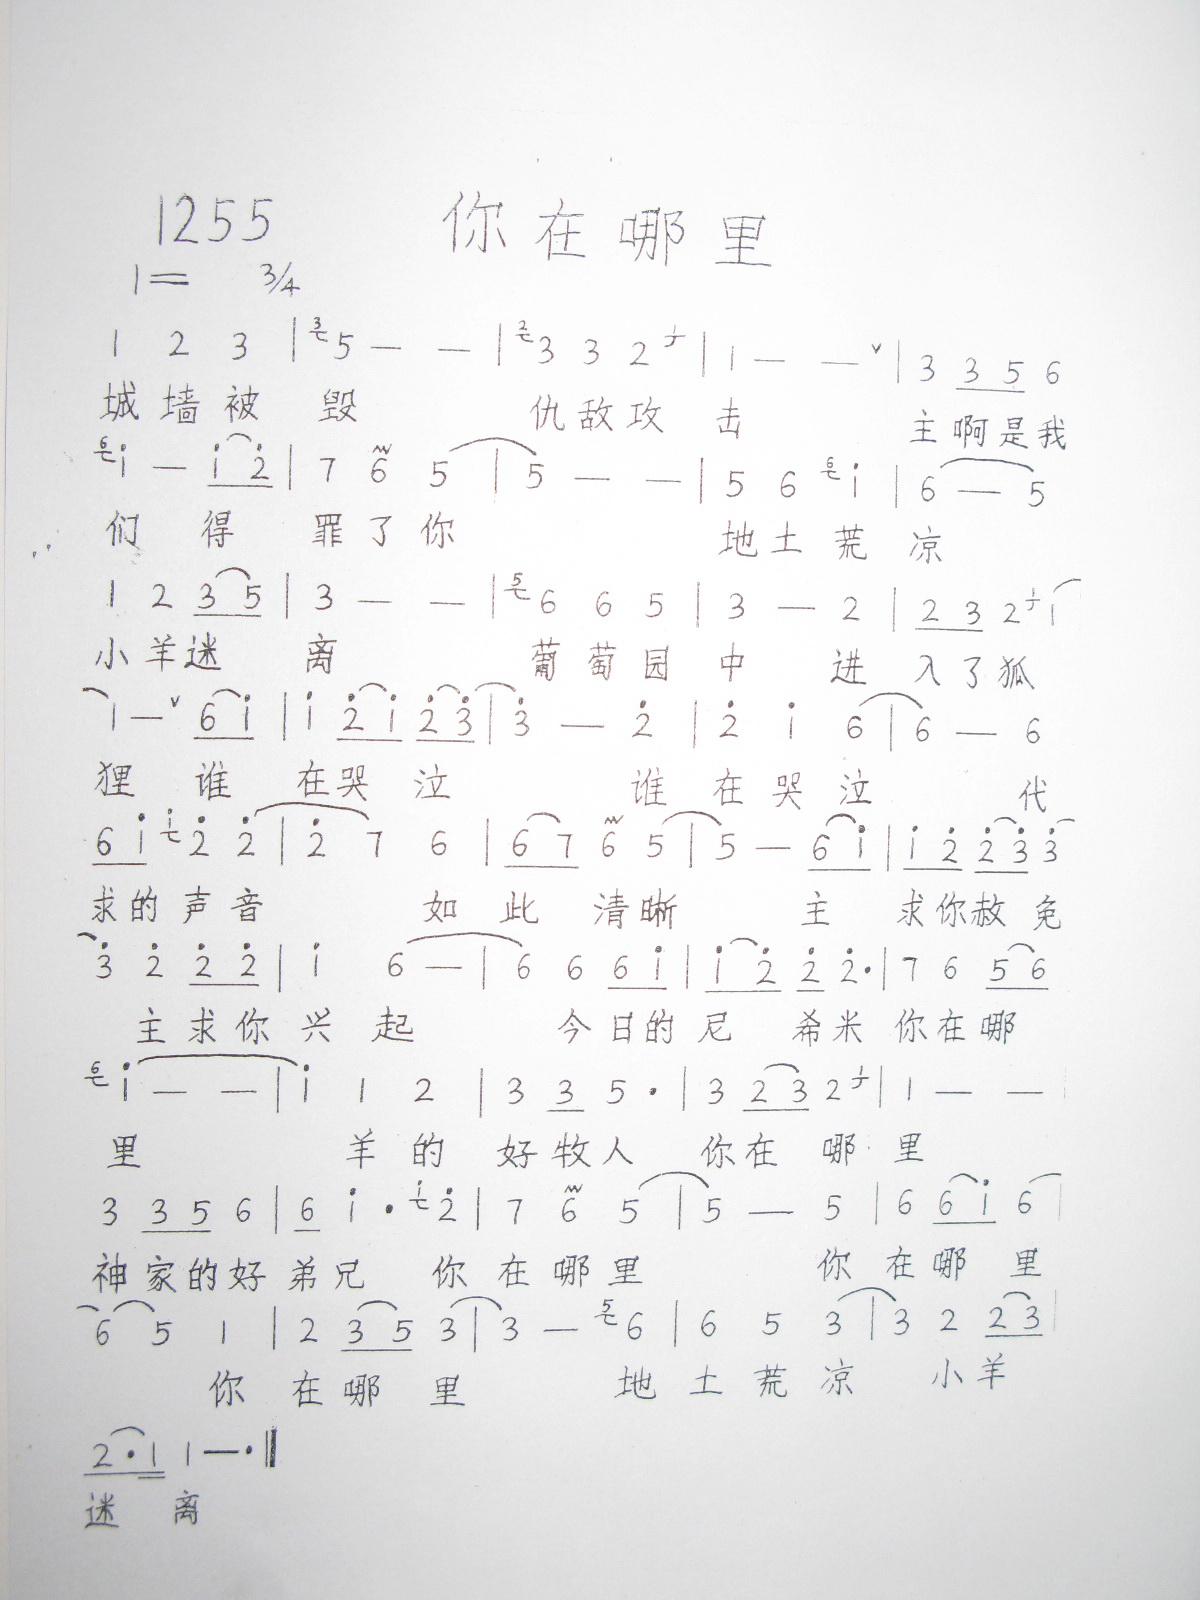 1255 你在哪里
1= 3/4
1 2 3 | 3 5 — — | 2 3 3 2 1 | 1 — — ∨ | 3 3 5 6
城墙被毁 仇敌攻击 主啊是我
6 i — i 2 | 7 6 5 | 5 — — | 5 6 6 i | 6 — 5
们得罪了你 地土荒凉
1 2 3 5 | 3 — — | 5 6 6 5 | 3 — 2 | 2 3 2 1 1
小羊迷离 葡萄园中进入了狐
1 — ∨ 6 i | i 2 i 2 3 | 3 — 2 | 2 i 6 | 6 — 6
狸谁在哭泣 谁在哭泣 代
6 i i 2 2 | 2 7 6 | 6 7 6 5 | 5 — 6 i | i 2 2 3 3
求的声音 如此清晰 主求你赦免
3 2 2 2 | i 6 — | 6 6 6 i | i 2 2 2 · | 7 6 5 6
主求你兴起 今日的尼希米你在哪
6 i — — | i 1 2 | 3 3 5 · | 3 2 3 2 1 | 1 — —
里 羊的好牧人 你在哪里
3 3 5 6 | 6 i · i 2 | 7 6 5 | 5 — 5 | 6 6 i 6
神家的好弟兄 你在哪里 你在哪里
6 5 1 | 2 3 5 3 | 3 — 5 6 | 6 5 3 | 3 2 2 3
你在哪里 地土荒凉 小羊
2 · 1 1 — · ‖
迷离